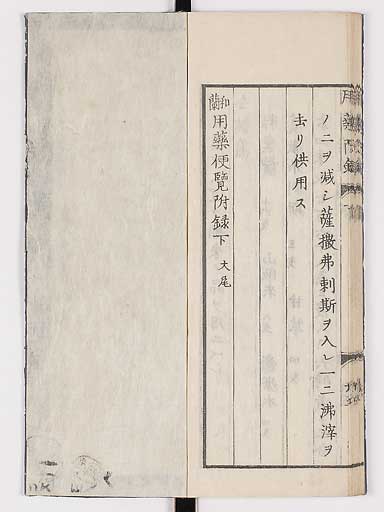 ノ二ヲ減シ薩撒弗剌斯ヲ入レ一二沸滓ヲ
去リ供用ス
和蘭用藥便覽附録下 大尾